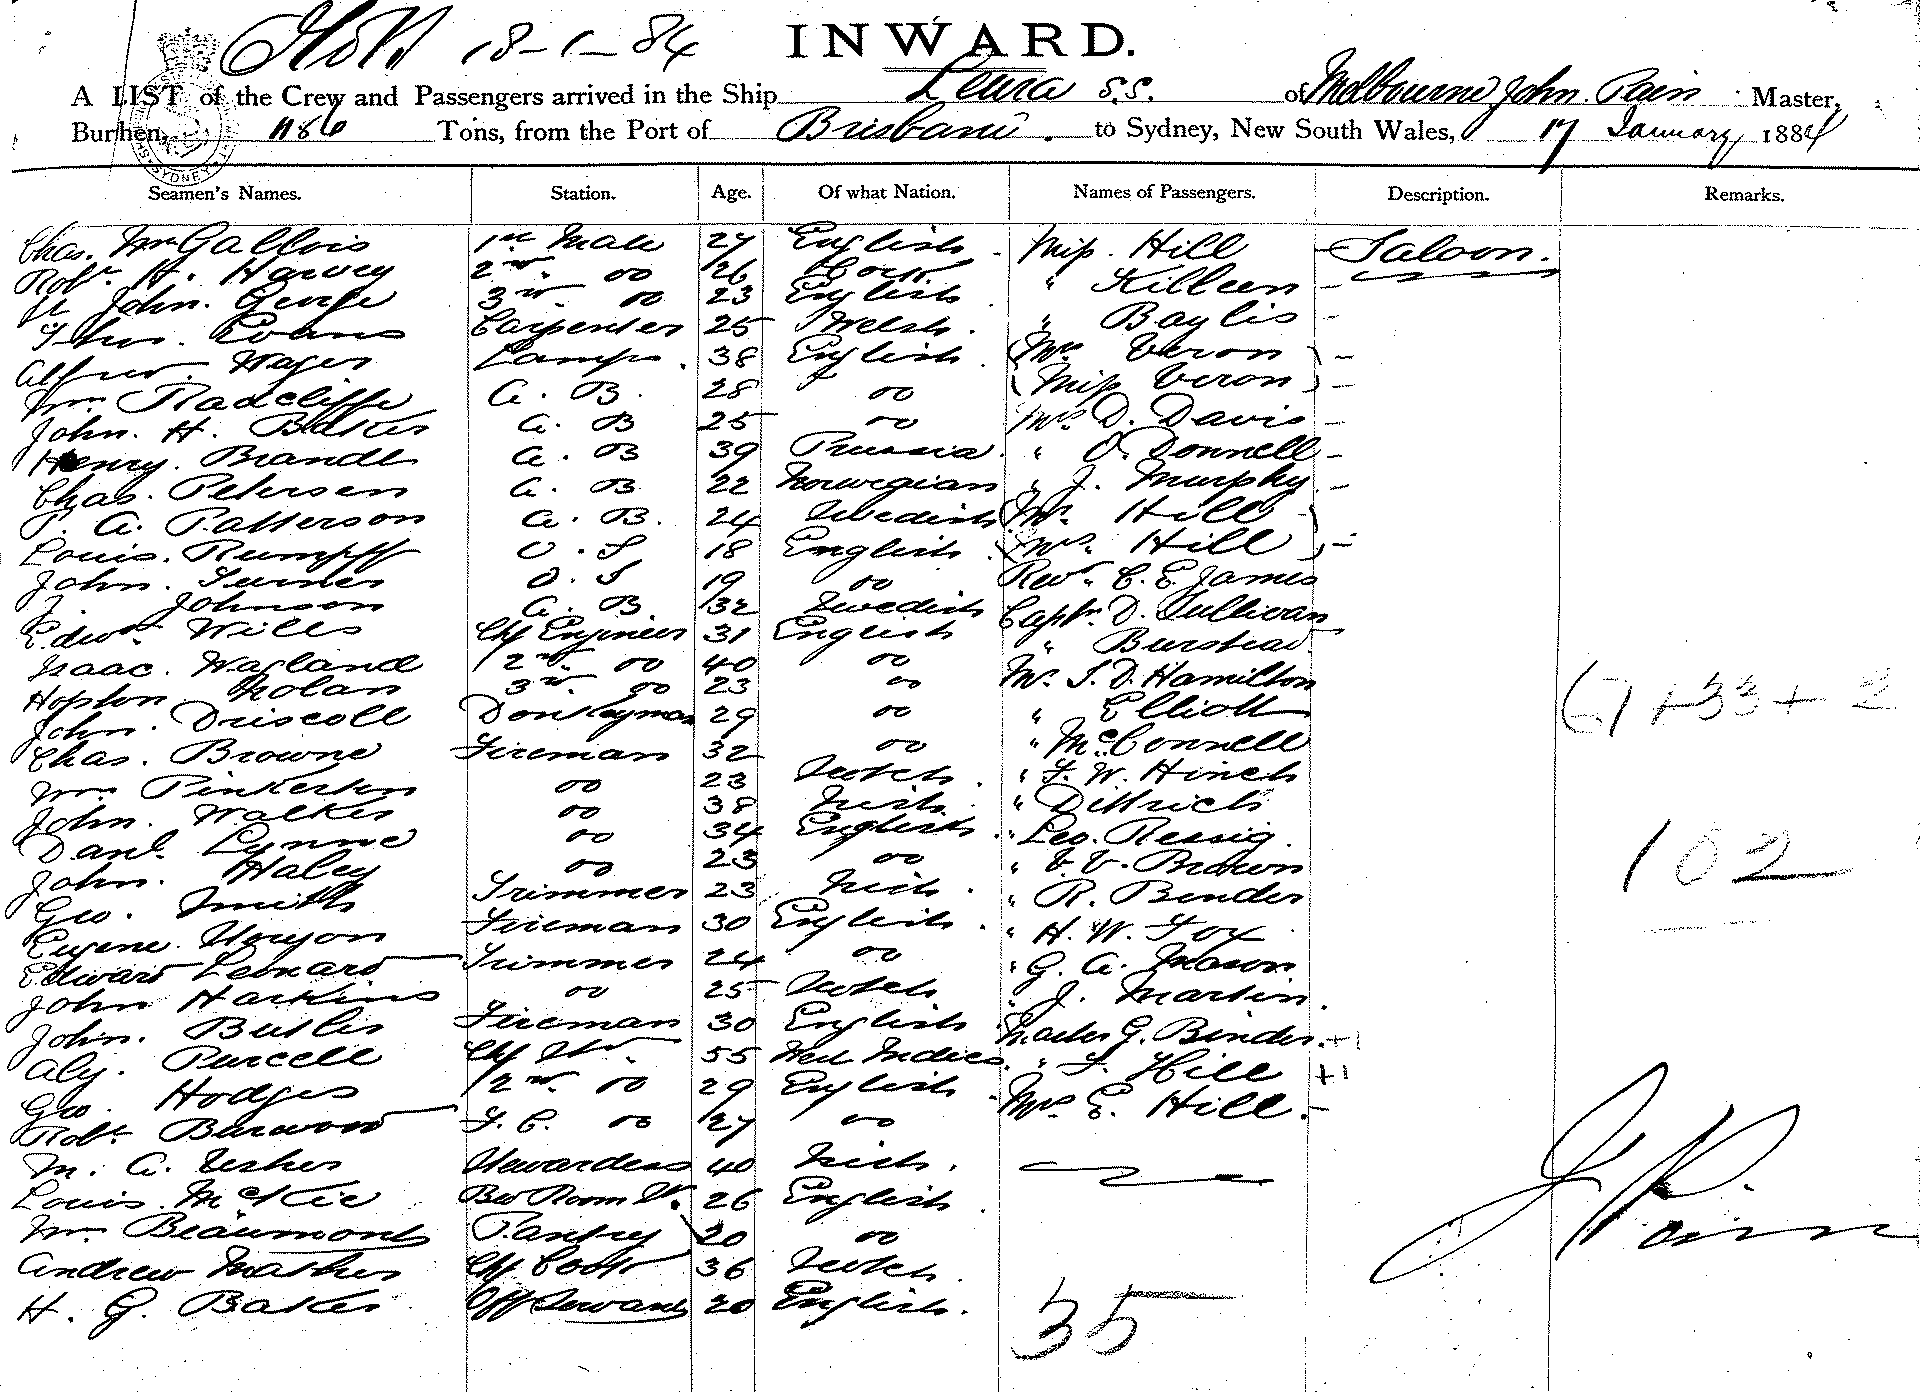 18-1-84 INWARD.
A LIST of the Crew and Passengers arrived in the Ship Leura S.S. of Melbourne John Pain Master,
Burthen, 1186 Tons, from the Port of Brisbane to Sydney, New South Wales, 17 January 1884
Seamen's Names. Station. Age. Of what Nation. Names of Passengers. Description. Remarks.
Chas. Wm Gallois 1st Mate 27 English Miss Hill - Saloon.
Robt. H. Harvey 2nd do 26 " Killeen -
John George 3rd do 23 English " Baylis -
Thos. Evans Carpenter 25 Welsh. Mrs Veron -
Alfred Wager Lamps. 38 English Miss Veron -
Wm Radcliffe A. B. 28 do Mrs D. Davis -
John. H. Baker A. B 25 do " O'Donnell -
Henry. Brandt A. B 39 Prussia. " J. Murphy -
Chas. Petersen A. B. 22 Norwegian Mr. Hill
P. A. Patterson A. B. 24 Swedish Mrs. Hill -
Louis. Rumpff O. S 18 English Revd. C. E. James
John. Turner O. S 19 do Captn. D. Sullivan
J. Johnson A. B 32 Swedish " Burstead
Edwd. Wills Chf Engineer 31 English Mr. S. D. Hamilton
Isaac. Wagland 2nd. do 40 do " Elliott
Hopton Nolan 3rd. do 23 do " McConnell
John. Driscoll Donkeyman 29 do " F. W. Hinch
Chas. Browne Fireman 32 do " Dittrich
Wm Pinkerton do 23 Scotch " Leo. Ressig.
John. Walker do 38 Irish. " V. V. Brown
Danl. Lynne do 34 English " R. Bender
John. Haley do 23 do " H. W. Fox
Geo. Smith Trimmer 23 Irish " G. A. Mason
Eugene Fireman 30 English " J. Martin.
Edward Leonard Trimmer 24 do Master G. Binder. +1
John Harkins do 25 Scotch " F. Hill +1
John. Butler Fireman 30 English Mrs E. Hill. -
Aly. Purcell Chf Std. 55 West Indies
Geo. Hodges 2nd do 29 English
Robt. Burwood F. C. do 27 do
M. A. Usher Stewardess 40 Irish.
Louis. McKie Bed Room St. 26 English
Wm. Beaumont Pantry 20 do
Andrew Mather Chf Cook 36 Scotch
H. G. Baker Off Servant 20 English.
35
67+33+2
102
J Pain